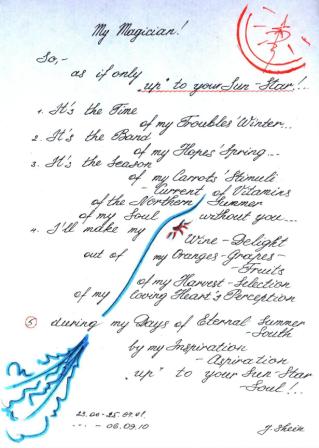 My Magician!
So,-
as if only
„up" to your Sun-Star!..
1. It's the Time
of my Troubles' Winter...
2. It's the Band
of my Hopes' Spring...
3. It's the Season
of my Carrots' Stimuli
- Current of Vitamins
of the Northern Summer
of my Soul without you....
4. I'll make my
Wine-Delight
out of my Oranges-Grapes-
-Fruits
of my Harvest-Selection
of my loving Heart's Perception
5 during my Days of Eternal Summer
-South
by my Inspiration
-Aspiration
„up" to your Sun-Star
-Soul!..
06.09.10
J. Shein